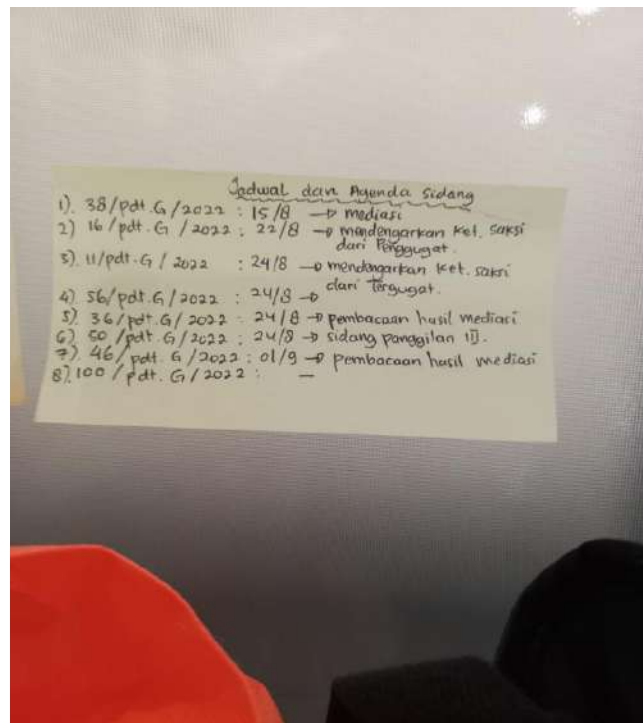 Jadwal dan Agenda Sidang
1). 38/pdt.G/2022 : 15/8 → mediasi
2) 16/pdt.G/2022 : 22/8 → mendengarkan ket. saksi
dari Penggugat.
3). 11/pdt.G/2022 : 24/8 → mendengarkan ket. saksi
dari Tergugat.
4) 56/pdt.G/2022 : 24/8 →
5). 36/pdt.G/2022 : 24/8 → pembacaan hasil mediasi
6) 50/pdt.G/2022 : 24/8 → sidang panggilan II.
7). 46/pdt.G/2022 : 01/9 → pembacaan hasil mediasi
8). 100/pdt.G/2022 : –